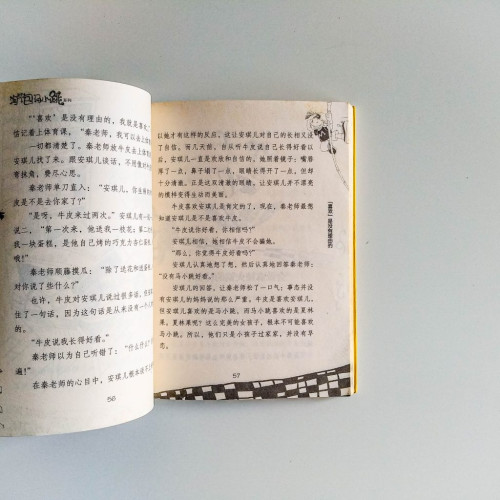 淘气包马小跳系列
“‘喜欢’是没有理由的，我就是喜
信记着上体育课，“秦老师，我可以去上体
一切都清楚了。秦老师放牛皮去上体育
安琪儿找了来。跟安琪儿谈话，不用像对牛
弯抹角，费尽心思。
秦老师单刀直入：“安琪儿，你
皮是不是去你家了？”
“是呀，牛皮来过两次。”安琪儿有一
说二，“第一次来，他送我一枝花；第二
我一块蛋糕，是他自己烤的巧克力杏仁
哦！”
秦老师顺藤摸瓜：“除了送花和
你说了些什么？”
也许，牛皮对安琪儿说过很多话，但
住了一句话，因为这句话是从来没有一个人
的。
“牛皮说我长得好看。”
秦老师以为自己听错了：“什么
遍！”
在秦老师的心目中，安琪儿根本
56
以她才有这样的反应。这让安琪儿对自己的长相又没
了自信。而几天前，自从听牛皮说自己长得好看以
后，安琪儿一直是欢欣和自信的。她照着镜子：嘴唇
厚了一点，鼻子塌了一点，眼睛长得开了一点，但却
十分清澈。正是这双清澈的眼睛，让安琪儿并不漂亮
的模样变得生动的美丽。
牛皮喜欢安琪儿是肯定的了，现在，秦老师最想
知道安琪儿是不是喜欢牛皮。
“牛皮说你好看，你相信吗？”
安琪儿相信，她相信牛皮不会骗她。
“那么，你觉得牛皮好看吗？”
安琪儿认真地想了想，然后认真地回答秦老师：
“没有马小跳好看。”
安琪儿的回答，让秦老师松了一口气：事态并没
有安琪儿的妈妈说的那么严重。牛皮是喜欢安琪儿，
但安琪儿喜欢的是马小跳，而马小跳喜欢的是夏林
果。夏林果呢？这么完美的女孩子，根本不可能喜欢
马小跳。所以，他们只是小孩子过家家，并没有早
恋。
57
“喜欢”是没有理由的